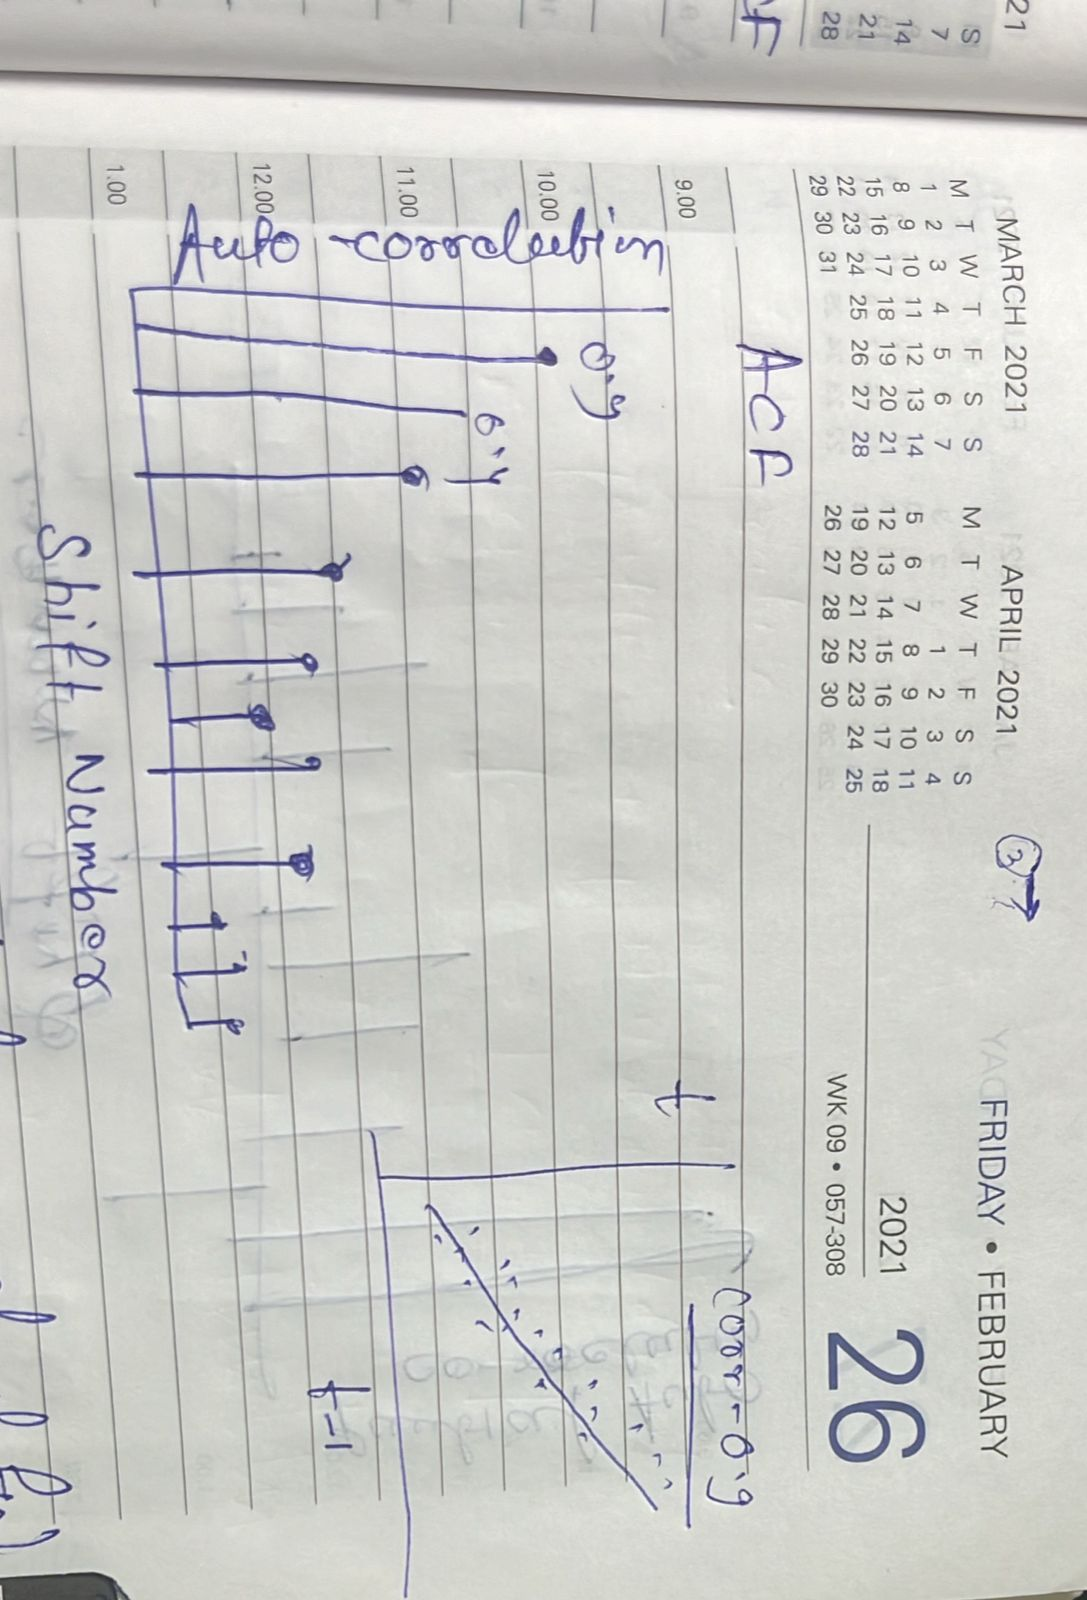 21
S
7
14
21
28
F
MARCH 2021
M T W T F S S
1 2 3 4 5 6 7
8 9 10 11 12 13 14
15 16 17 18 19 20 21
22 23 24 25 26 27 28
29 30 31
APRIL 2021
M T W T F S S
1 2 3 4
5 6 7 8 9 10 11
12 13 14 15 16 17 18
19 20 21 22 23 24 25
26 27 28 29 30
2
FRIDAY • FEBRUARY
2021
WK 09 • 057-308
26
ACF
9.00
10.00
11.00
12.00
1.00
Auto-correlation
0.9
Shift Number
t
Corr-0.9
t-1